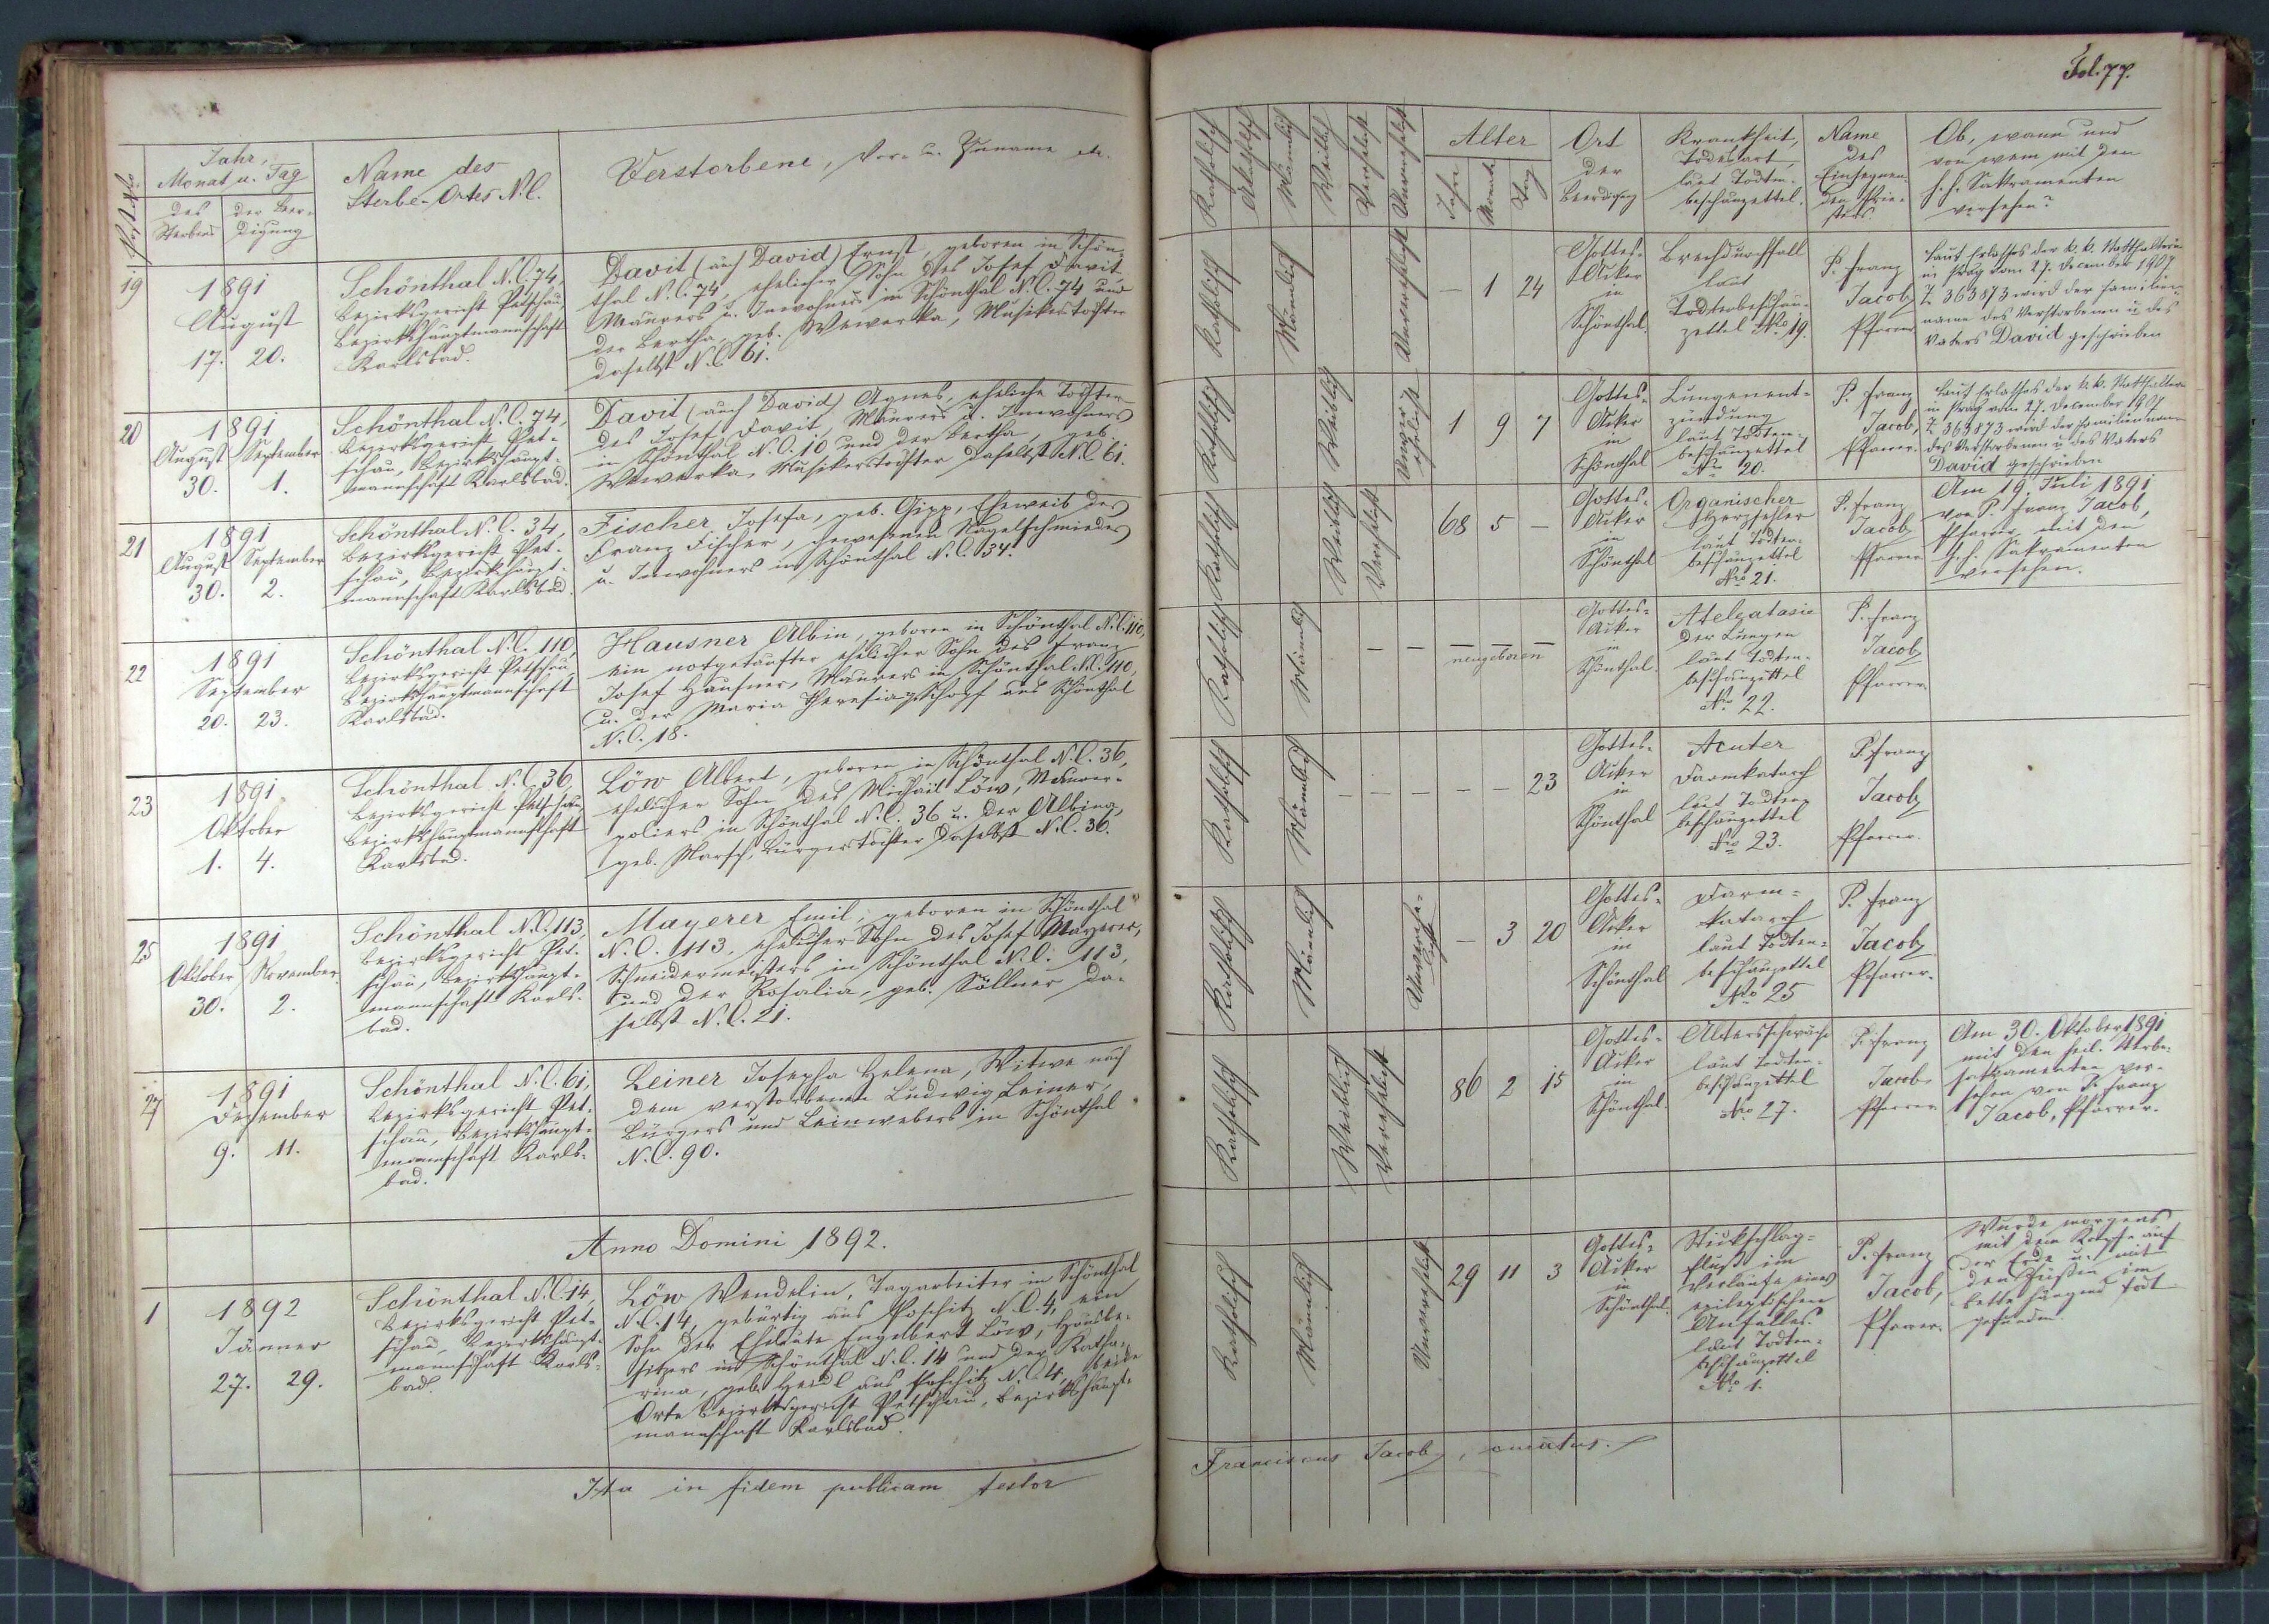 Fol. 77.
Post Nro.
Jahr,
Monat u. Tag
des
Sterbens
der Beer-
digung
Name des
Sterbe-Ortes N.C.
Verstorbene, Vor- u. Zuname etc.
Katholisch
Akatholisch
Männlich
Weiblich
Verehelicht
Unverehelicht
Alter
Jahr
Monat
Tag
Ort
der
Beerdigung
Krankheit,
Todesart,
laut Todten-
beschauzettel.
Name
des
Einsegnen-
den Prie-
sters
Ob, wann und
von wem mit den
h. h. Sakramenten
versehen?
19
1891
August
17. 20.
Schönthal N.C. 74,
Bezirksgericht Petschau,
Bezirkshauptmannschaft
Karlsbad.
Davit (auch David) Ernst, geboren in Schön-
thal N.C. 74, ehelicher Sohn des Josef Davit,
Maurers u. Inwohners in Schönthal N.C. 74 und
der Bertha, geb. Wewerka, Musikerstochter
daselbst N.C. 61.
Katholisch
Männlich
Unverehelicht
— 1 24
Gottes-
Acker
in
Schönthal.
Brechdurchfall
laut
Todtenbeschau-
zettel Nro 19.
P. Franz
Jacob,
Pfarrer
Laut Erlasses der k. k. Statthalterei
in Prag vom 27. December 1907
Z. 363873 wird der Familien-
name des Verstorbenen u. des
Vaters David geschrieben
20
1891
August September
30. 1.
Schönthal N.C. 74,
Bezirksgericht Pet-
schau, Bezirkshaupt-
mannschaft Karlsbad.
Davit (auch David) Agnes, eheliche Tochter
des Josef Davit, Maurers u. Inwohners
in Schönthal N.C. 10 und der Bertha, geb.
Wewerka, Musikerstochter daselbst N.C. 61.
Katholisch
Weiblich
Unver-
ehelicht
1 9 7
Gottes-
Acker
in
Schönthal
Lungenent-
zündung
laut Todten-
beschauzettel
Nro 20.
P. Franz
Jacob,
Pfarrer.
Laut Erlasses der k. k. Statthalterei
in Prag vom 27. December 1907
Z. 363873 wird der Familienname
des Verstorbenen u. des Vaters
David geschrieben
21
1891
August September
30. 2.
Schönthal N.C. 34,
Bezirksgericht Pet-
schau, Bezirkshaupt-
mannschaft Karlsbad.
Fischer Josefa, geb. Gipp, Eheweib des
Franz Fischer, gewesenen Nagelschmiedes
u. Inwohners in Schönthal N.C. 34.
Katholisch
Weiblich
Verehelicht
68 5 —
Gottes-
Acker
in
Schönthal
Organischer
Herzfehler
laut Todten-
beschauzettel
Nro 21.
P. Franz
Jacob,
Pfarrer
Am 19. Juli 1891
von P. Franz Jacob,
Pfarrer, mit den
h. h. Sakramenten
versehen.
22
1891
September
20. 23.
Schönthal N.C. 110,
Bezirksgericht Petschau,
Bezirkshauptmannschaft
Karlsbad.
Hausner Albin, geboren in Schönthal N.C. 110,
ein notgetaufter ehelicher Sohn des Franz
Josef Hausner, Maurers in Schönthal N.C. 110,
u. der Maria Theresia aus Schönthal
N.C. 18.
Katholisch
Männlich
— — neugeboren
Gottes-
Acker
in
Schönthal.
Atelgatasie
der Lungen
laut Todten-
beschauzettel
Nro 22.
P. Franz
Jacob,
Pfarrer.
23
1891
Oktober
1. 4.
Schönthal N.C. 36,
Bezirksgericht Petschau,
Bezirkshauptmannschaft
Karlsbad.
Löw Albert, geboren in Schönthal N.C. 36,
ehelicher Sohn des Michael Löw, Maurer-
poliers in Schönthal N.C. 36 u. der Albina,
geb. Marsch, Bürgerstochter daselbst N.C. 36.
Katholisch
Männlich
— — — — — 23
Gottes-
Acker
in
Schönthal
Acuter
Darmkatarrh
laut Todten-
beschauzettel
Nro 23.
P. Franz
Jacob,
Pfarrer.
25
1891
Oktober November
30. 2.
Schönthal N.C. 113,
Bezirksgericht Pet-
schau, Bezirkshaupt-
mannschaft Karls-
bad.
Mayerer Emil, geboren in Schönthal
N.C. 113, ehelicher Sohn des Josef Mayerer,
Schneidermeisters in Schönthal N.C. 113,
und der Rosalia, geb. Söllner da-
selbst N.C. 21.
Katholisch
Männlich
Unverehe-
licht
— 3 20
Gottes-
Acker
in
Schönthal
Darm-
katarrh
laut Todten-
beschauzettel
Nro 25
P. Franz
Jacob,
Pfarrer.
27
1891
Dezember
9. 11.
Schönthal N.C. 61,
Bezirksgericht Pet-
schau, Bezirkshaupt-
mannschaft Karls-
bad.
Leiner Josepha Helena, Witwe nach
dem verstorbenen Ludwig Leiner,
Bürgers und Leinwebers in Schönthal
N.C. 90.
Katholisch
Weiblich
Verehelicht
86 2 15
Gottes-
Acker
in
Schönthal.
Altersschwäche
laut Todten-
beschauzettel
Nro 27.
P. Franz
Jacob,
Pfarrer
Am 30. Oktober 1891
mit den heil. Sterbe-
sakramenten ver-
sehen von P. Franz
Jacob, Pfarrer.
Anno Domini 1892.
1
1892
Jänner
27. 29.
Schönthal N.C. 14,
Bezirksgericht Pet-
schau, Bezirkshaupt-
mannschaft Karls-
bad.
Löw Wendelin, Tagarbeiter in Schönthal
N.C. 14, gebürtig aus Poschitz N.C. 4, ein
Sohn der Eheleute Engelbert Löw, Hausbe-
sitzers in Schönthal N.C. 14 und der Katha-
rina, geb. Heidl aus Poschitz N.C. 4, beide
Orte Bezirksgericht Petschau, Bezirkshaupt-
mannschaft Karlsbad.
Katholisch
Männlich
Unverehelicht
29 11 3
Gottes-
Acker
in
Schönthal.
Stickschlag-
fluß im
Verlaufe eines
epileptischen
Anfalles.
laut Todten-
beschauzettel
Nro 1.
P. Franz
Jacob,
Pfarrer.
Wurde morgens
mit dem Kopfe auf
der Erde u. mit
den Füßen im
Bette hängend tot
gefunden.
Ita in fidem publicam testor
Franciscus Jacob, curatus.